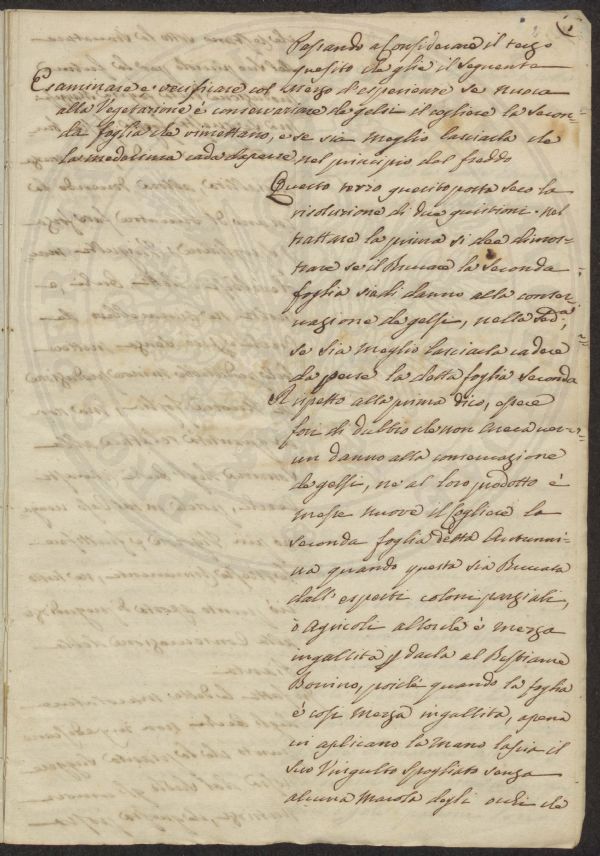 Passando a Considerare il terzo
quesito che gl'è il seguente
Esaminare e verificare col mezzo d'esperienze se nuoca
alla Vegetazione è conservazione de gelsi il cogliere la secon-
da foglia che rimettano, e se sia meglio lasciarla che
la medesima cada da per se nel principio del freddo
Questo terzo quesito porta seco la
risoluzione di due quistioni. Nel
trattare la prima si dee dimos-
trare se il Bruccare la seconda
foglia sia di danno alla conser-
vazione de gelsi, nella 2da,
se sia meglio lasciarla cadere
da per se la detta foglia seconda
Rispetto alla prima dico, essere
fori di dubbio che non areca ver-
un danno alla conservazione
de gelsi, ne al loro prodotto è
messe nuove il Cogliere la
seconda foglia detta Autunni-
na quando questa sia Bruccata
dall'esperti coloni parziali,
ò Agricoli allorche è mezza
ingallita p darla al Bestiame
Bovino, poiché quando la foglia
è cosi mezza ingallita, apena
vi aplicano la Mano lascia il
suo Virgulto spogliato senza
alcuna Macola degli occhi che